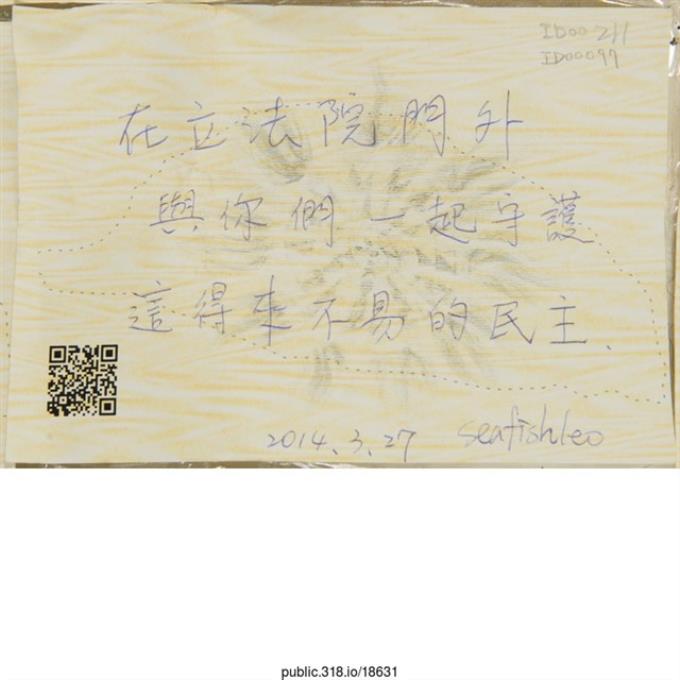 ID00211
ID00097
在立法院門外
與你們一起守護
這得來不易的民主.
2014.3.27 seafishleo
public.318.io/18631